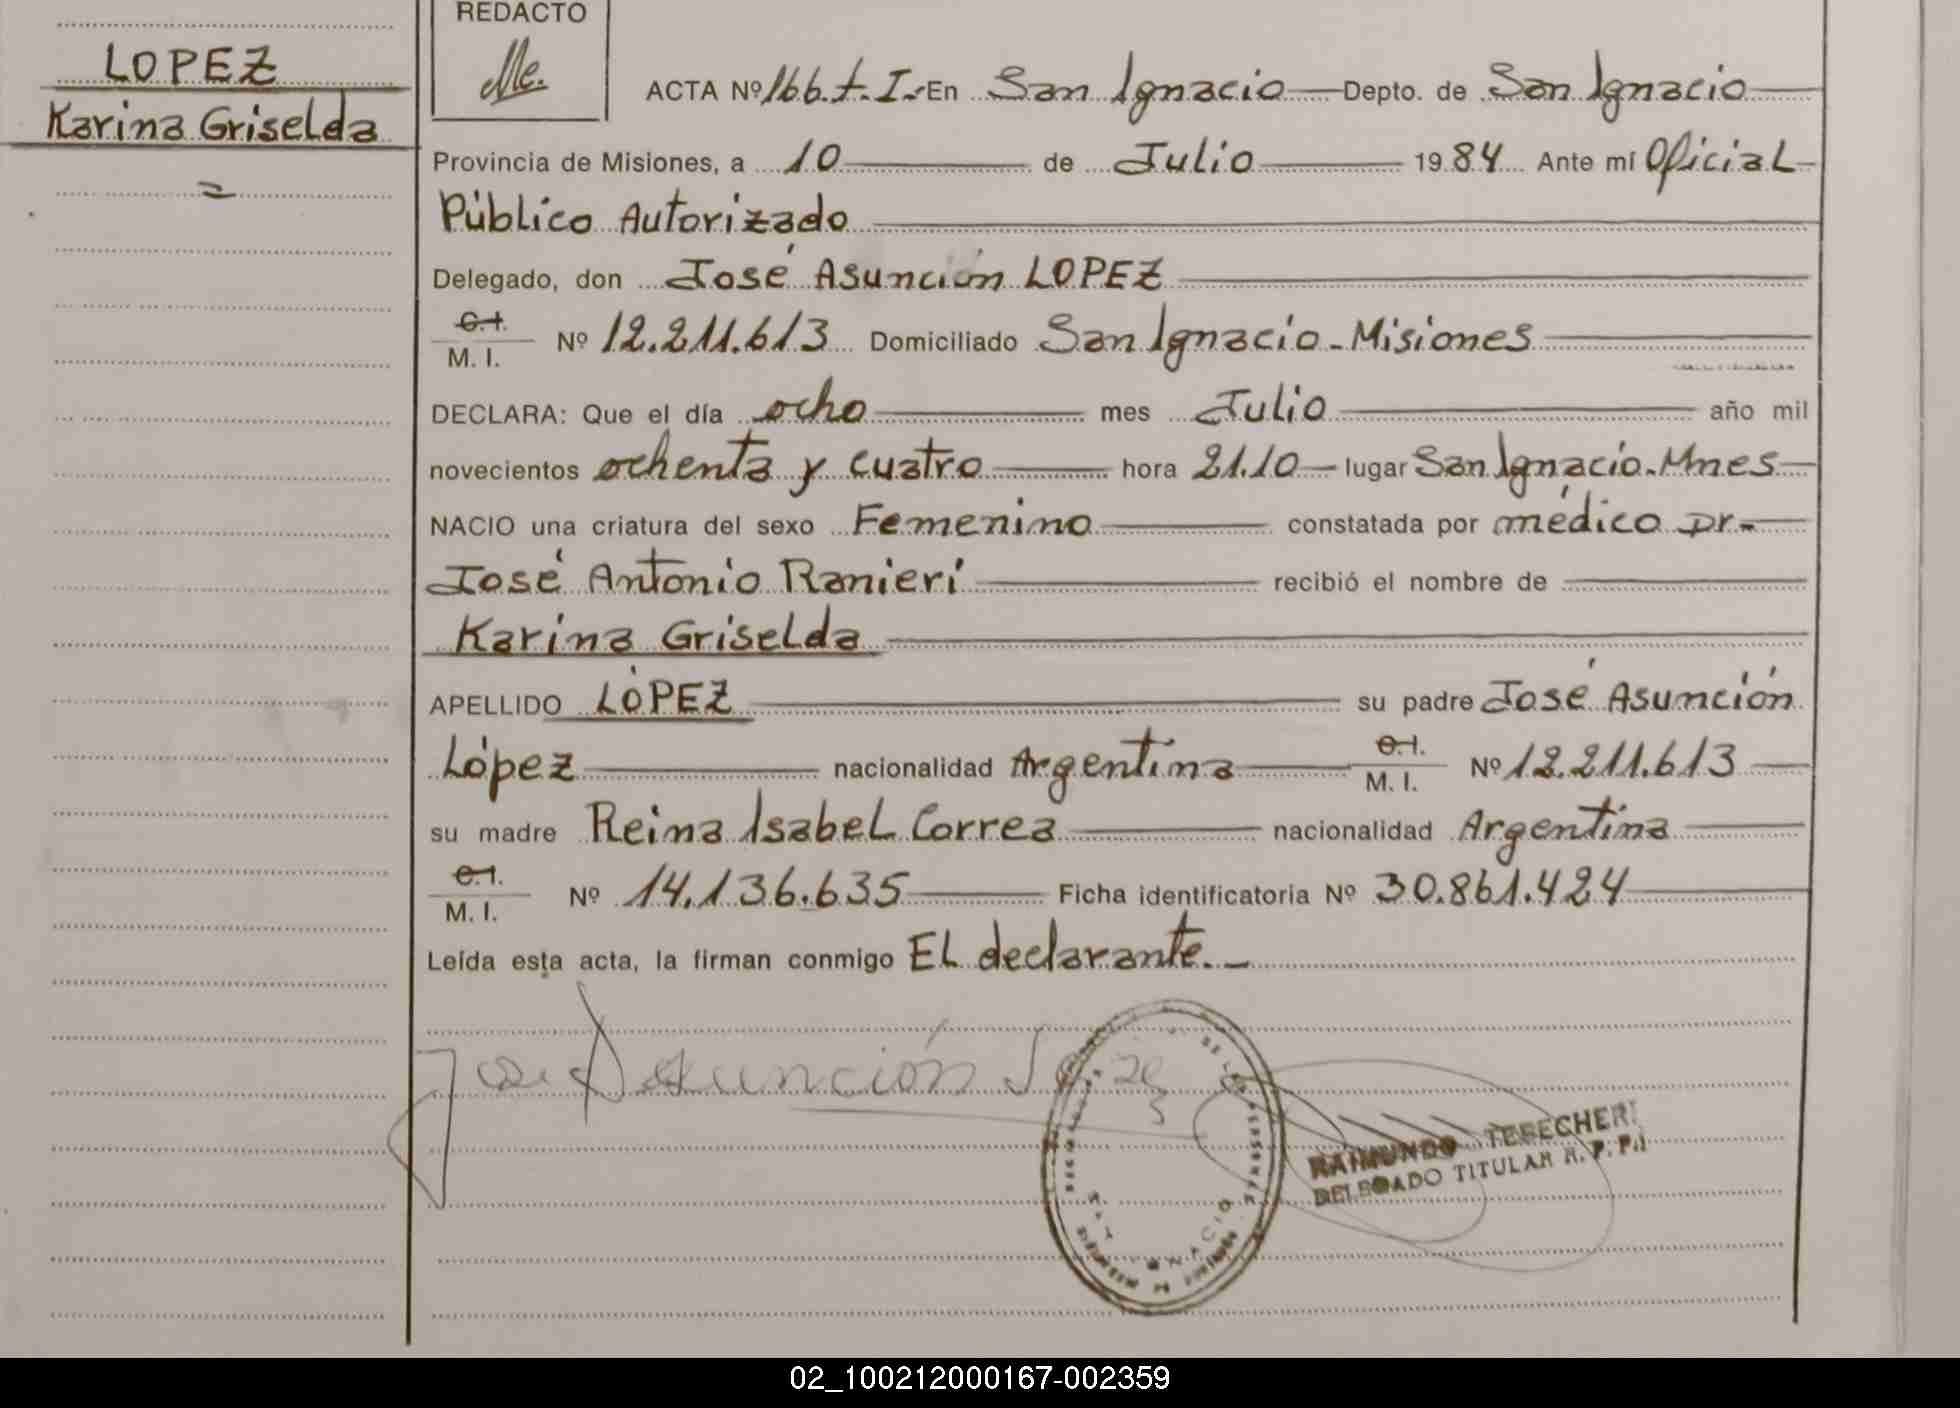 LOPEZ
Karina Griselda
REDACTO
ACTA Nº 166.t.I.- En San Ignacio Depto. de San Ignacio
Provincia de Misiones, a 10 de Julio 1984 Ante mí Oficial
Público Autorizado
Delegado, don José Asunción LOPEZ
C.I.
M. I. Nº 12.211.613 Domiciliado San Ignacio - Misiones
DECLARA: Que el día ocho mes Julio año mil
novecientos ochenta y cuatro hora 21.10 lugar San Ignacio-Mnes
NACIO una criatura del sexo Femenino constatada por médico Dr.
José Antonio Ranieri recibió el nombre de
Karina Griselda
APELLIDO LÓPEZ su padre José Asunción
López nacionalidad Argentina C.I. M. I. Nº 12.211.613
su madre Reina Isabel Correa nacionalidad Argentina
C.I.
M. I. Nº 14.136.635 Ficha identificatoria Nº 30.861.424
Leída esta acta, la firman conmigo El declarante.-
José Asunción
RAIMUNDO TEBECHERI
DELEGADO TITULAR R. P. P.
02_100212000167-002359